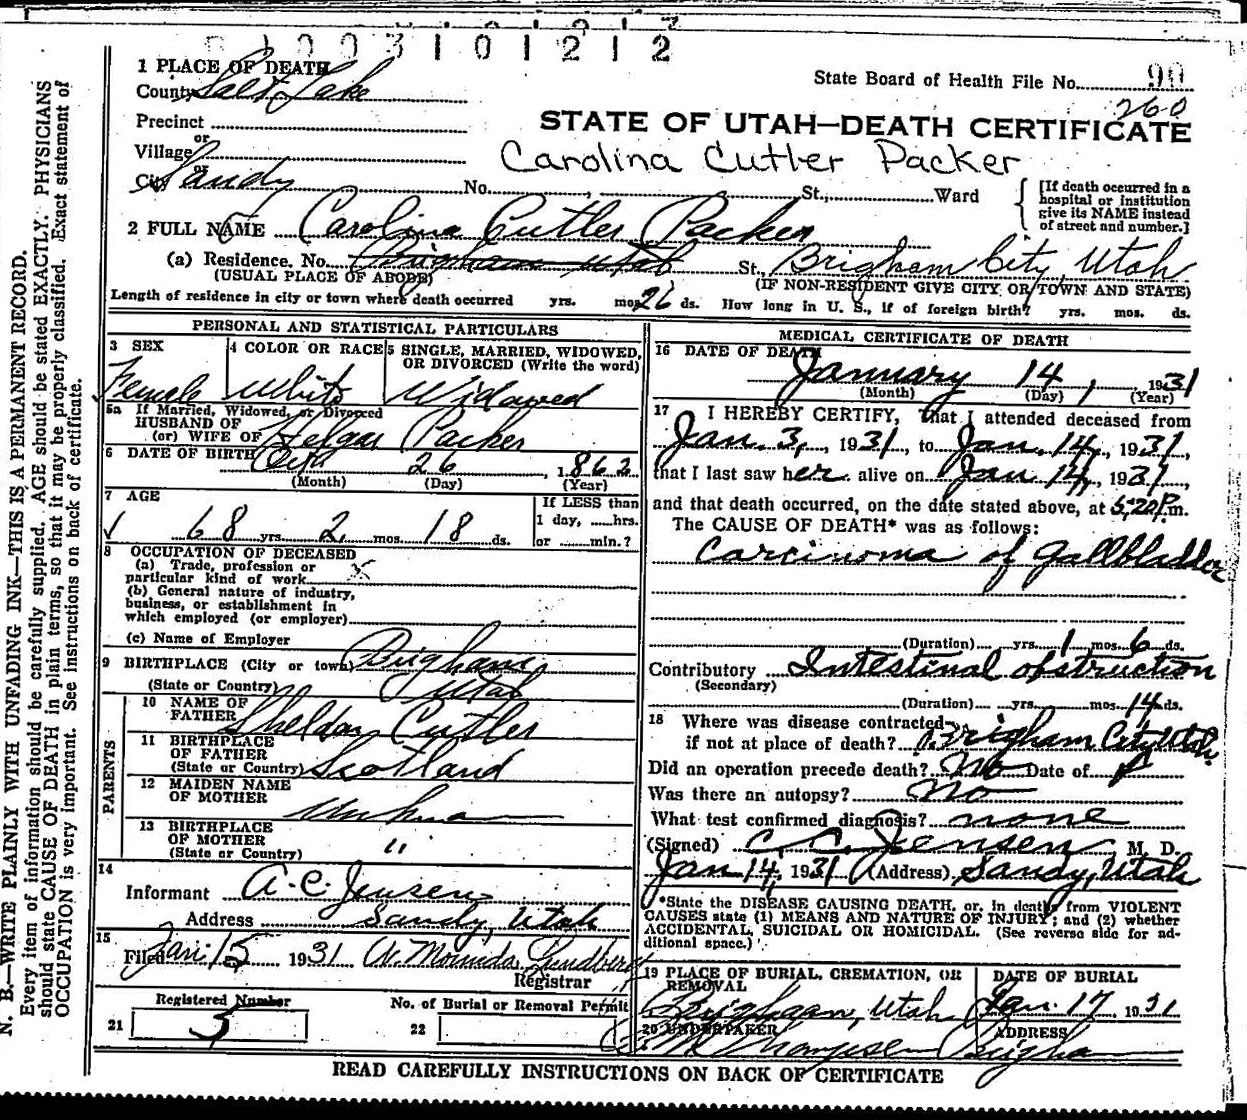 S 1 0 0 3 1 0 1 2 1 2
1 PLACE OF DEATH
State Board of Health File No. 90
County Salt Lake
260
Precinct
STATE OF UTAH—DEATH CERTIFICATE
or
Village
Carolina Cutler Packer
or
City Sandy No. , St., Ward
[If death occurred in a hospital or institution give its NAME instead of street and number.]
2 FULL NAME Carolina Cutler Packer
(a) Residence. No. Brigham Utah St., Brigham City, Utah
(USUAL PLACE OF ABODE) (IF NON-RESIDENT GIVE CITY OR TOWN AND STATE)
Length of residence in city or town where death occurred yrs. mos. 26 ds. How long in U. S., if of foreign birth? yrs. mos. ds.
PERSONAL AND STATISTICAL PARTICULARS
3 SEX 4 COLOR OR RACE 5 SINGLE, MARRIED, WIDOWED, OR DIVORCED (Write the word)
Female White Widowed
5a If Married, Widowed, or Divorced
HUSBAND OF
(or) WIFE OF Packer
6 DATE OF BIRTH Oct 26, 1862
(Month) (Day) (Year)
7 AGE If LESS than
1 day, hrs.
68 yrs. 2 mos. 18 ds. or min.?
8 OCCUPATION OF DECEASED
(a) Trade, profession or
particular kind of work x
(b) General nature of industry,
business, or establishment in
which employed (or employer)
(c) Name of Employer
9 BIRTHPLACE (City or town) Brigham
(State or Country) Utah
PARENTS
10 NAME OF
FATHER Sheldon Cutler
11 BIRTHPLACE
OF FATHER
(State or Country) Scotland
12 MAIDEN NAME
OF MOTHER
13 BIRTHPLACE
OF MOTHER
(State or Country) "
14
Informant A. C. Jensen
Address Sandy, Utah
15
Filed Jan. 15 1931 Lundberg
Registrar
Registered Number No. of Burial or Removal Permit
21 5 22
MEDICAL CERTIFICATE OF DEATH
16 DATE OF DEATH
January 14, 1931
(Month) (Day) (Year)
17 I HEREBY CERTIFY, That I attended deceased from
Jan. 3, 1931, to Jan. 14, 1931,
that I last saw her alive on Jan 14, 1931,
and that death occurred, on the date stated above, at 5:20 P.m.
The CAUSE OF DEATH* was as follows:
Carcinoma of Gallbladder
(Duration) yrs. 1 mos. 6 ds.
Contributory Intestinal obstruction
(Secondary)
(Duration) yrs. mos. 14 ds.
18 Where was disease contracted
if not at place of death? Brigham City Utah.
Did an operation precede death? No Date of
Was there an autopsy? No
What test confirmed diagnosis? none
(Signed) C. C. Jensen, M. D.
Jan 14, 1931 (Address) Sandy, Utah
*State the DISEASE CAUSING DEATH, or, in deaths from VIOLENT
CAUSES state (1) MEANS AND NATURE OF INJURY; and (2) whether
ACCIDENTAL, SUICIDAL OR HOMICIDAL. (See reverse side for ad-
ditional space.)
19 PLACE OF BURIAL, CREMATION, OR REMOVAL DATE OF BURIAL
Brigham, Utah Jan. 17, 1931
20 UNDERTAKER ADDRESS
Brigham
READ CAREFULLY INSTRUCTIONS ON BACK OF CERTIFICATE
N. B.—WRITE PLAINLY WITH UNFADING INK—THIS IS A PERMANENT RECORD.
Every item of information should be carefully supplied. AGE should be stated EXACTLY. PHYSICIANS
should state CAUSE OF DEATH in plain terms, so that it may be properly classified. Exact statement of
OCCUPATION is very important. See instructions on back of certificate.